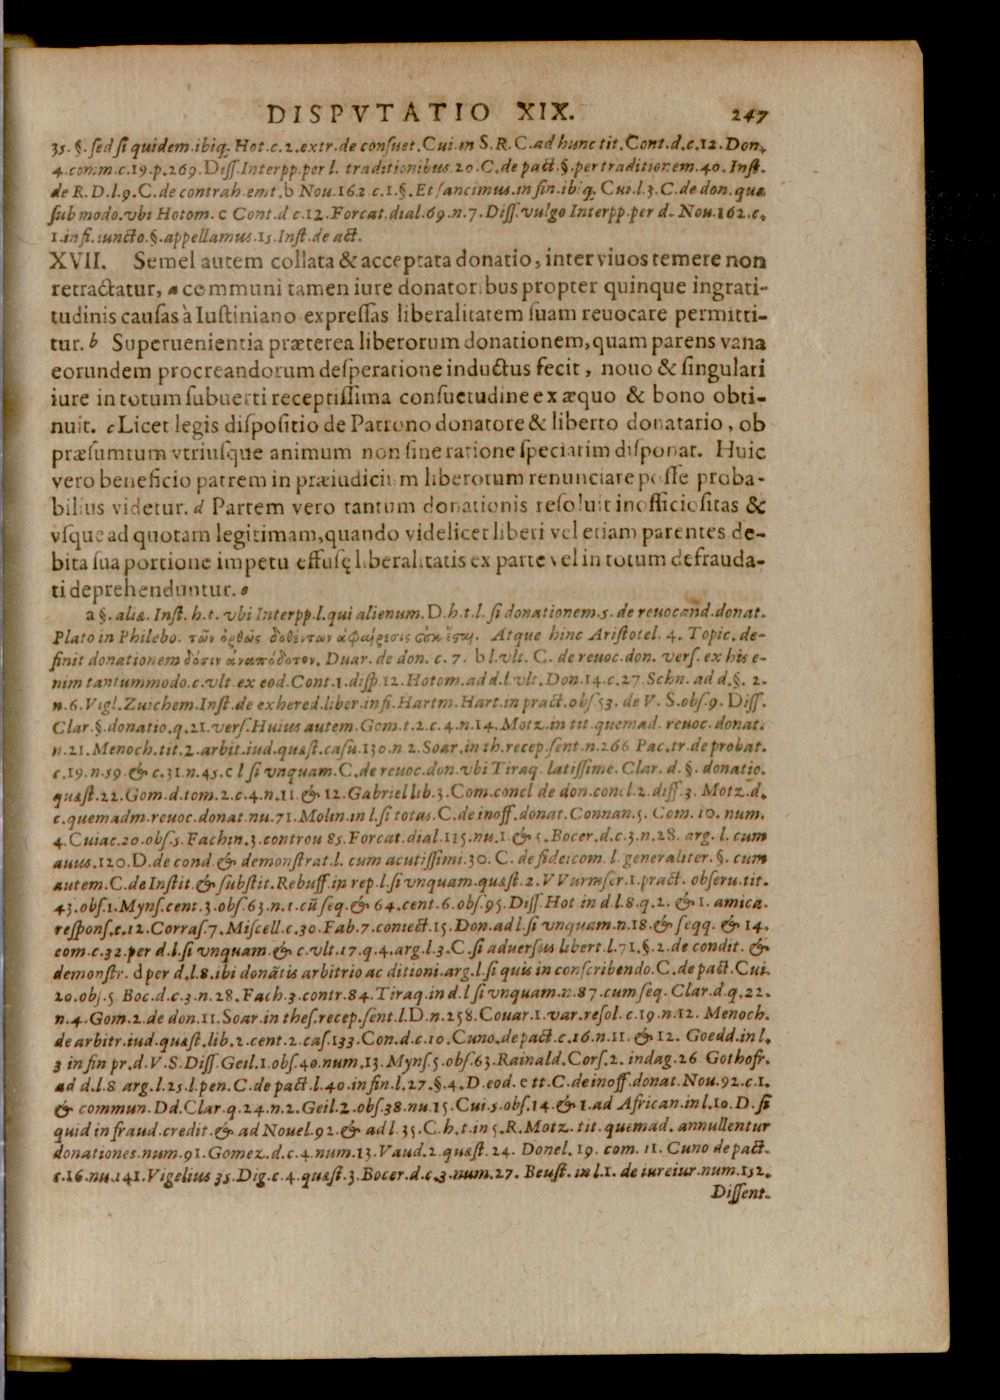 DISPVTATIO XIX. 247
35. §. sed si quidem. ibiq; Hot. c. 2. extr. de consuet. Cui. in S. R. C. ad hunc tit. Cont. d. c. 12. Don.
4. comm. c. 19. p. 269. Diss. Interpp. per l. traditionibus. 20. C. de pact. §. per traditionem. 40. Inst.
de R. D. l. 9. C. de contrah. emt. b Nou. 162 c. 1. §. Et sancimus. in fin. ibiq; Cui. l. 3. C. de don. quæ
sub modo. vbi Hotom. c Cont. d c. 12. Forcat. dial. 69. n. 7. Diss. vulgo Interpp. per d. Nou. 162. c.
1. in fi. iuncto. §. appellamus. 15. Inst. de act.
XVII. Semel autem collata & acceptata donatio, inter viuos temere non
retractatur, a communi tamen iure donatoribus propter quinque ingrati-
tudinis causas à Iustiniano expressas liberalitatem suam reuocare permitti-
tur. b Superuenientia præterea liberorum donationem, quam parens vana
eorundem procreandorum desperatione inductus fecit, nouo & singulari
iure in totum subuerti receptissima consuetudine ex æquo & bono obti-
nuit. c Licet legis dispositio de Patrono donatore & liberto donatario, ob
præsumtum vtriusque animum non sine ratione speciatim disponat. Huic
vero beneficio patrem in præiudicium liberorum renunciare posse proba-
bilius videtur. d Partem vero tantum donationis resoluit inofficiositas &
vsque ad quotam legitimam, quando videlicet liberi vel etiam parentes de-
bita sua portione impetu effusę liberalitatis ex parte vel in totum defrauda-
ti deprehenduntur. e
a §. aliæ. Inst. h. t. vbi Interpp. l. qui alienum. D. h. t. l. si donationem. 5. de reuocand. donat.
Plato in Philebo. τῶν ὀρθῶς δοθέντων ἀφαίρεσις οὐκ ἔςαι. Atque hinc Aristotel. 4. Topic. de-
finit donationem δόσιν ἀναπόδοτον. Duar. de don. c. 7. b l. vlt. C. de reuoc. don. vers. ex his e-
nim tantummodo. c. vlt ex eod. Cont. 1. disp. 12. Hotom. ad d. l. vlt. Don. 14. c. 27. Schn. ad d. §. 2.
n. 6. Vigl. Zuichem. Inst. de exhered. liber. in fi. Hartm. Hart. in pract. obs. 53. de V. S. obs. 9. Diss.
Clar. §. donatio. q. 21. vers. Huius autem. Gom. t. 2. c. 4. n. 14. Motz. in tit. quemad. reuoc. donat.
n. 21. Menoch. tit. 2. arbit. iud. quæst. casu. 130. n 2. Soar. in th. recep. sent. n. 266 Pac. tr. de probat.
c. 19. n. 59. & c. 31. n. 45. c l si vnquam. C. de reuoc. don. vbi Tiraq. latissime. Clar. d. §. donatio.
quæst. 22. Gom. d. tom. 2. c. 4. n. 11. & 12. Gabriel lib. 3. Com. concl de don. concl. 2. diff. 3. Motz. d.
c. quemadm. reuoc. donat. nu. 71. Molin. in l. si totas. C. de inoff. donat. Connan. 5. Com. 10. num.
4. Cuiac. 20. obs. 5. Fachin. 3. controu 85. Forcat. dial. 115. nu. 1. & 5. Bocer. d. c. 3. n. 28. arg. l. cum
auus. 120. D. de cond & demonstrat. l. cum acutissimi. 30. C. de fideicom. l. generaliter. §. cum
autem. C. de Instit. & substit. Rebuff. in rep. l. si vnquam. quæst. 2. VVurmser. 1. pract. obseru. tit.
43. obs. 1. Myns. cent. 3. obs. 63. n. 1. cũ seq. & 64. cent. 6. obs. 95. Diss. Hot in d. l. 8. q. 2. & 1. amica.
respons. c. 12. Corras. 7. Miscell. c. 30. Fab. 7. coniect. 15. Don. ad l. si vnquam. n. 18. & seqq. & 14.
com. c. 32. per d. l. si vnquam. & c. vlt. 17. q. 4. arg. l. 3. C. si aduersus libert. l. 71. §. 2. de condit. &
demonstr. d per d. l. 8. ibi donātis arbitrio ac ditioni. arg. l. si quis in conscribendo. C. de pact. Cui.
20. obs. 5. Boc. d. c. 3. n. 28. Fach. 3. contr. 84. Tiraq. in d. l si vnquam. n. 87. cum seq. Clar. d. q. 22.
n. 4. Gom. 2. de don. 11. Soar. in thes. recep. sent. l. D. n. 258. Couar. 1. var. resol. c. 19. n. 12. Menoch.
de arbitr. iud. quæst. lib. 2. cent. 2. cas. 133. Con. d. c. 10. Cuno. de pact. c. 16. n. 11. & 12. Goedd. in l.
3 in fin pr. d. V. S. Diss. Geil. 1. obs. 40. num. 13. Myns. 5. obs. 63. Rainald. Cors. 2. indag. 26 Gothofr.
ad d. l. 8 arg. l. 25. l. pen. C. de pact. l. 40. in fin. l. 27. §. 4. D. eod. e tt. C. de inoff. donat. Nou. 92. c. 1.
& commun. Dd. Clar. q. 24. n. 2. Geil. 2. obs. 38. nu. 15. Cui. 5. obs. 14. & 1. ad African. in l. 10. D. si
quid in fraud. credit. & ad Nouel. 92. & ad l 35. C. h. t. in 5. R. Motz. tit. quemad. annullentur
donationes. num. 91. Gomez. d. c. 4. num. 13. Vaud. 2. quæst. 24. Donel. 19. com. 11. Cuno de pact.
c. 16. nu. 141. Vigelius 35. Dig. c. 4. quæst. 3. Bocer. d. c. 3. num. 27. Beust. in l. 1. de iureiur. num. 152.
Dissent.